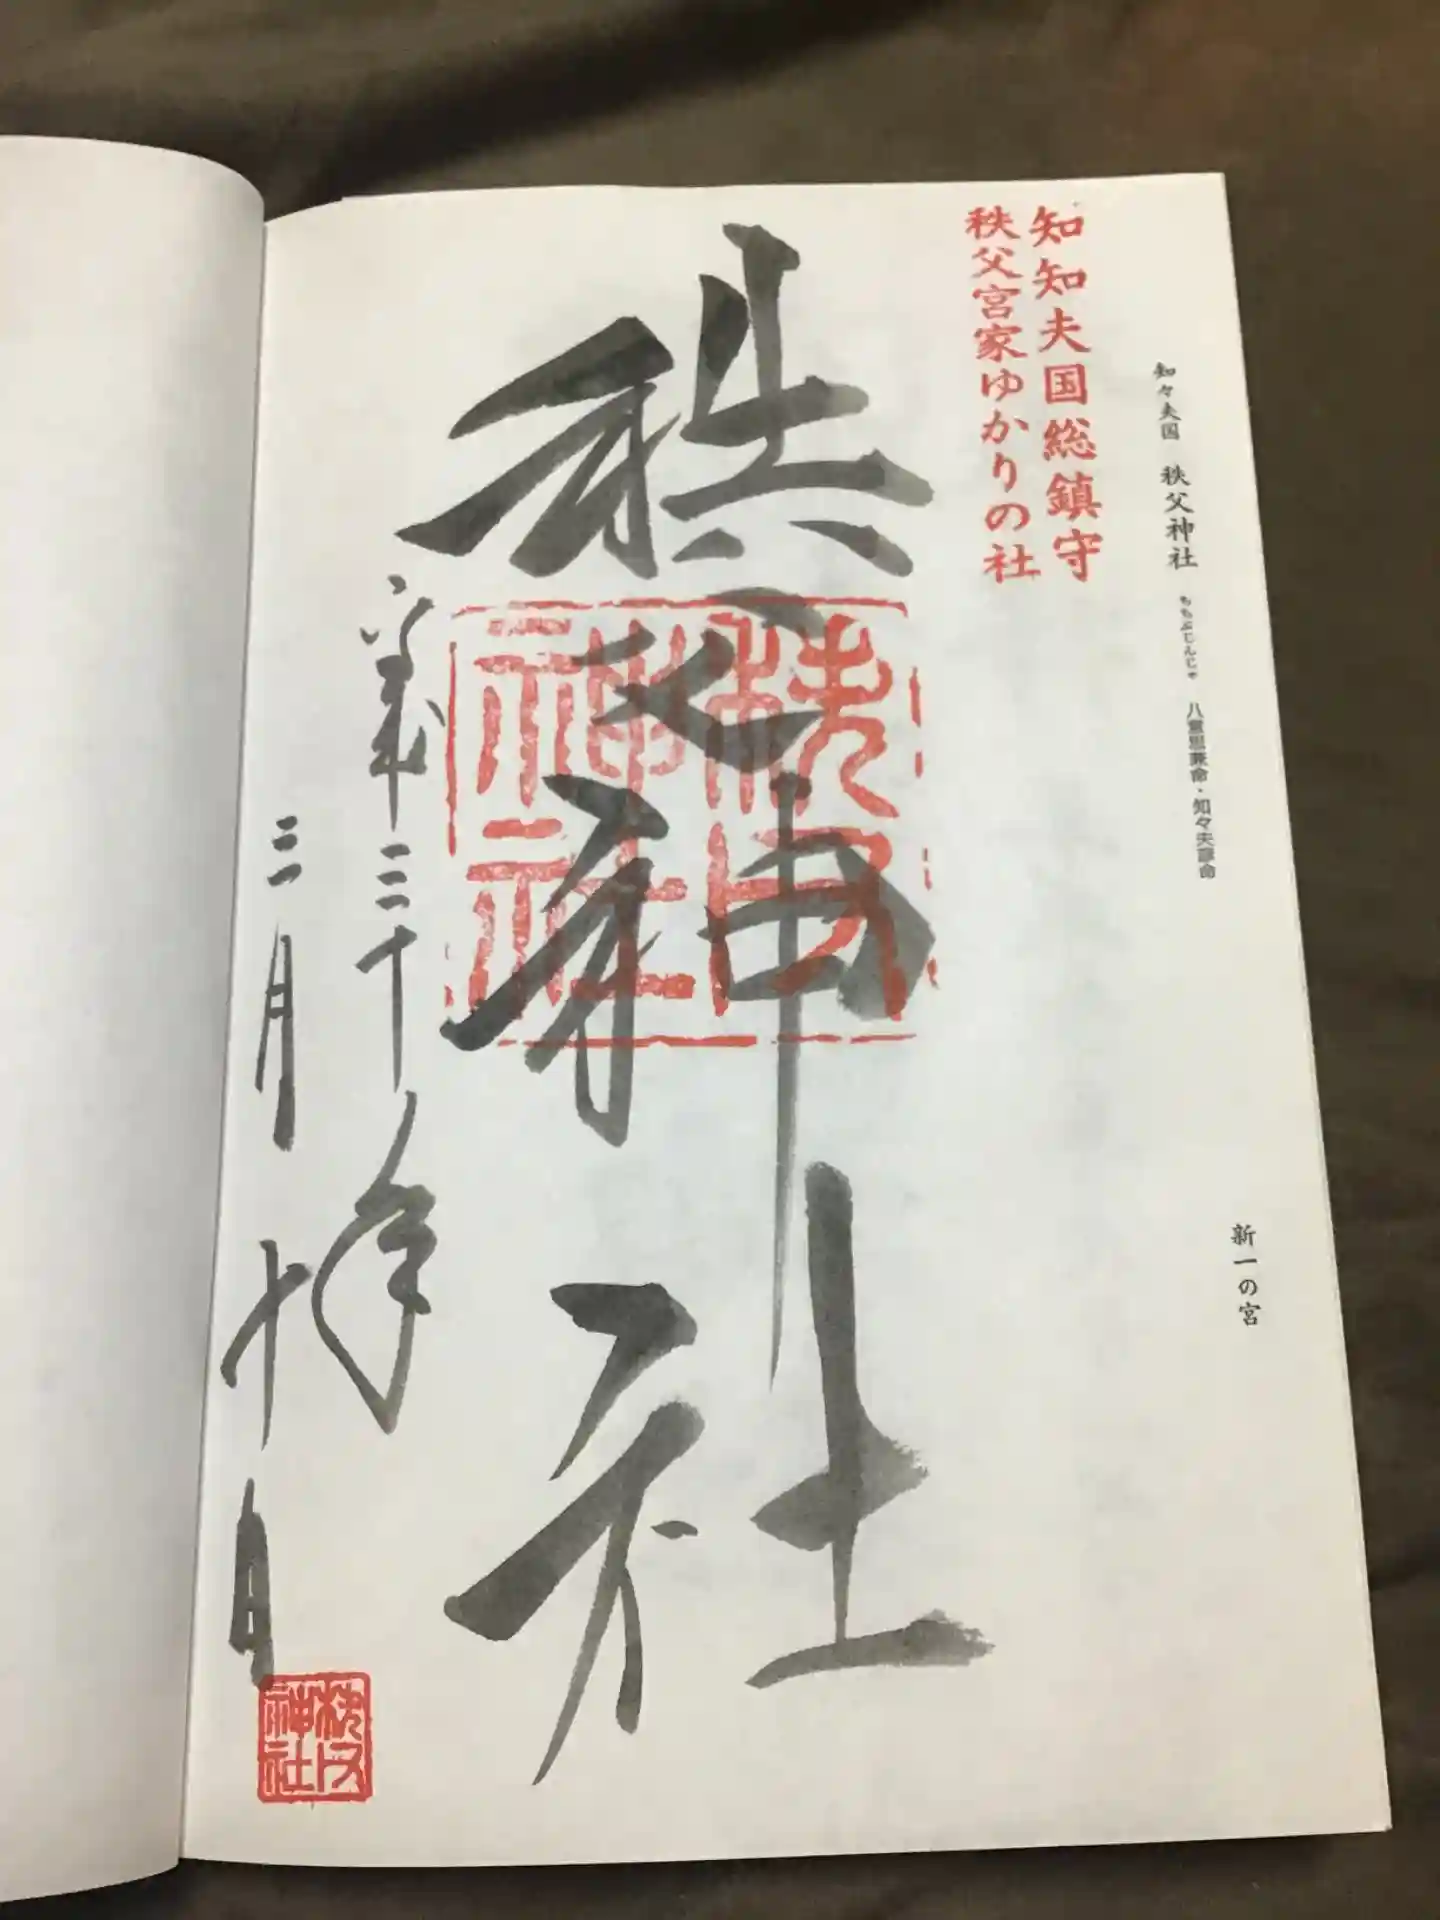 知々夫国　秩父神社　ちちぶじんじゃ　八意思兼命・知々夫彦命　新一の宮
知知夫国総鎮守
秩父宮家ゆかりの社
秩父神社
秩父神社
平成三十年
三月十日
秩父神社